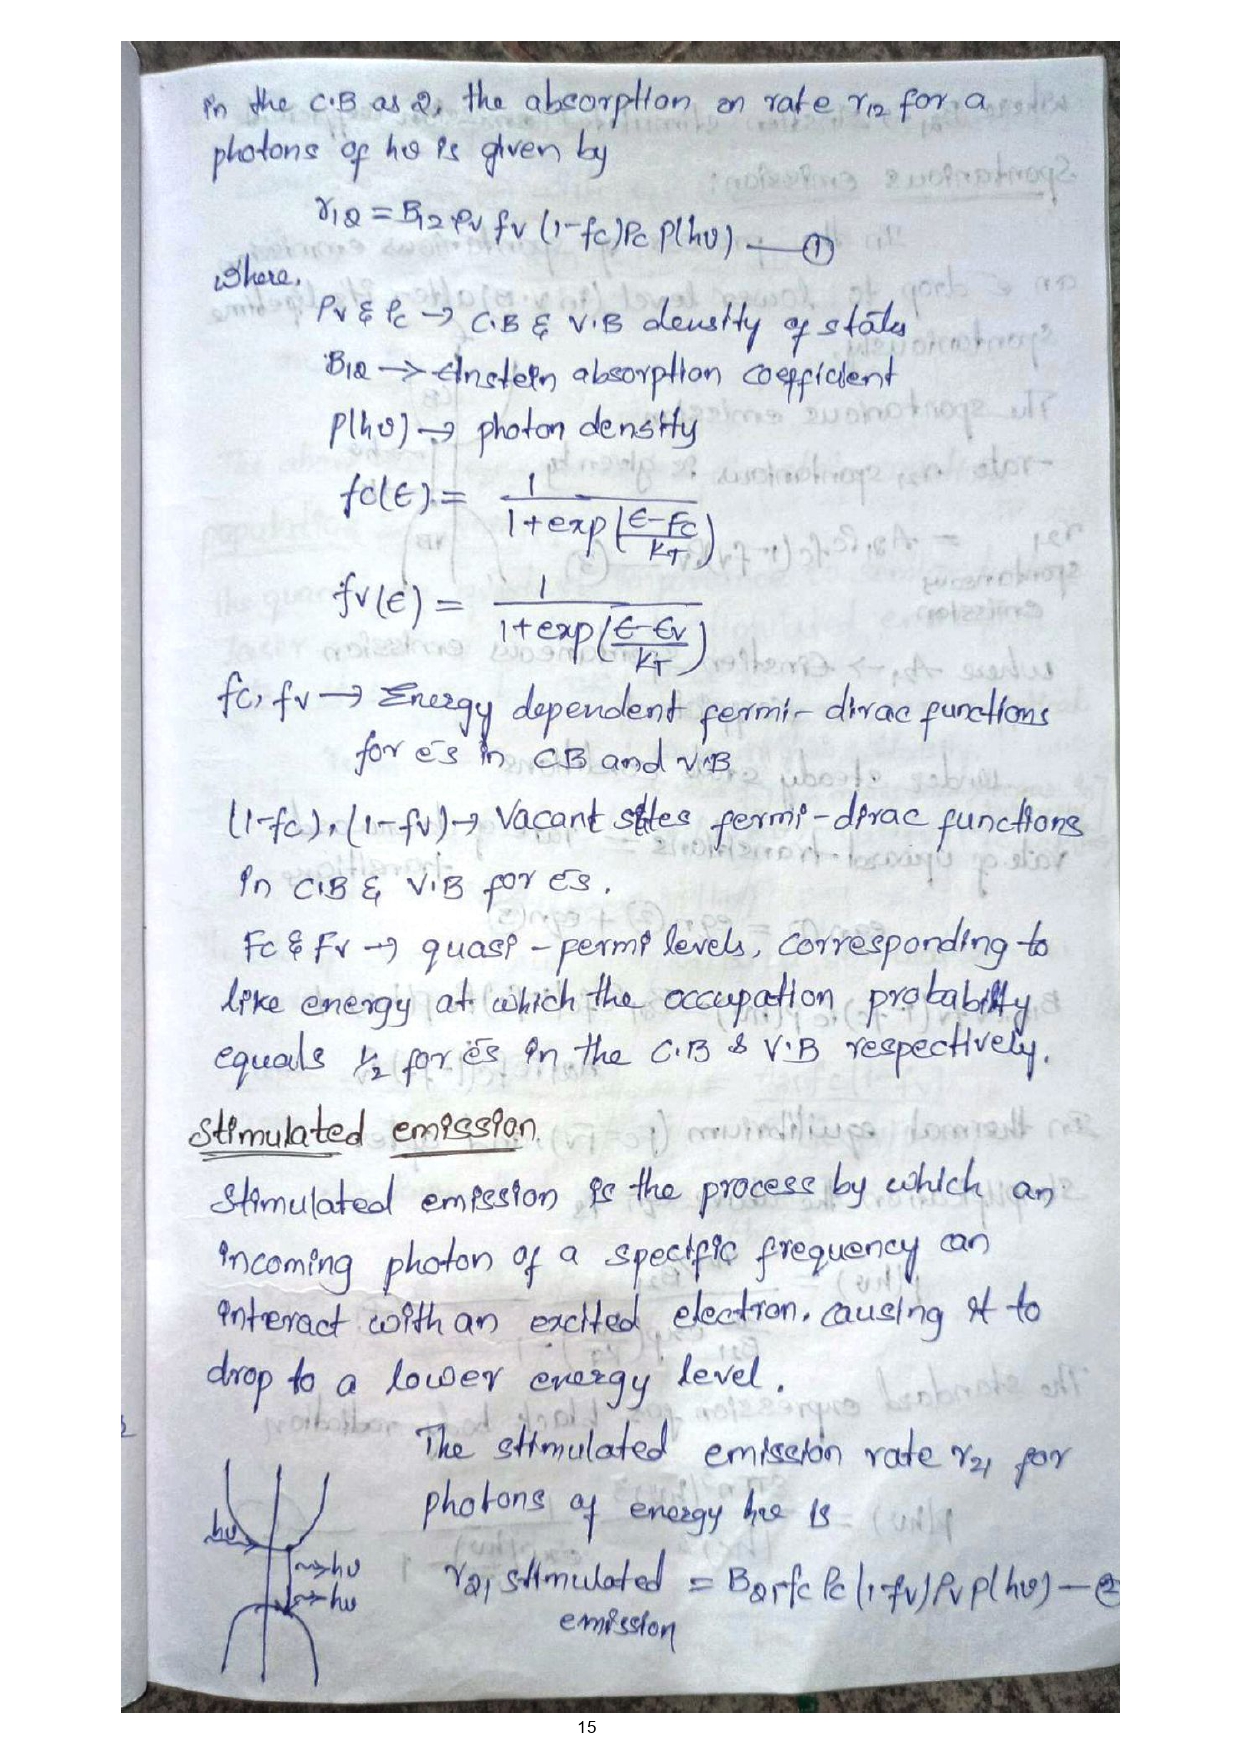 in the C.B as 2, the absorption on rate r12 for a
photons of hυ is given by
r12 = B12 ρv fv (1-fc) ρc p(hυ) — ①
where,
ρv & ρc → C.B & V.B density of states
B12 → Einstein absorption coefficient
P(hυ) → photon density
fc(E) = 1 / 1+exp((E-Fc)/KT)
fv(E) = 1 / 1+exp((E-Ev)/KT)
fc, fv → Energy dependent fermi-dirac functions
for e-s in CB and V.B
(1-fc), (1-fv) → Vacant states fermi-dirac functions
in C.B & V.B for e-s.
Fc & Fv → quasi-permi levels, corresponding to
like energy at which the occupation probability
equals 1/2 for e-s in the C.B & V.B respectively.
Stimulated emission.
Stimulated emission is the process by which an
incoming photon of a specific frequency can
interact with an excited electron, causing it to
drop to a lower energy level.
The stimulated emission rate r21 for
photons of energy hυ is
hυ
hυ
hυ
r21 stimulated = B21 fc ρc (1-fv) ρv p(hυ) — ②
emission
15